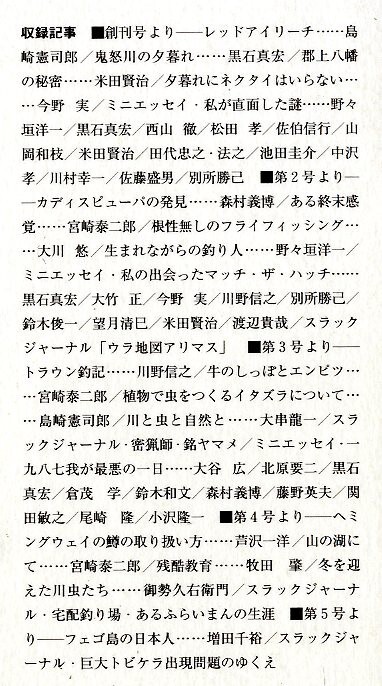 収録記事　■創刊号より──レッドアイリーチ……島
崎憲司郎／鬼怒川の夕暮れ……黒石真宏／郡上八幡
の秘密……米田賢治／夕暮れにネクタイはいらない…
…今野　実／ミニエッセイ・私が直面した謎……野々
垣洋一／黒石真宏／西山　徹／松田　孝／佐伯信行／山
岡和枝／米田賢治／田代忠之・法之／池田圭介／中沢
孝／川村幸一／佐藤盛男／別所勝己　■第２号より―
―カディスピューパの発見……森村義博／ある終末感
覚……宮崎泰二郎／根性無しのフライフィッシング…
…大川　悠／生まれながらの釣り人……野々垣洋一／
ミニエッセイ・私の出会ったマッチ・ザ・ハッチ……
黒石真宏／大竹　正／今野　実／川野信之／別所勝己／
鈴木俊一／望月清巳／米田賢治／渡辺貴哉／スラック
ジャーナル「ウラ地図アリマス」　■第３号より──
トラウン釣記……川野信之／牛のしっぽとエンピツ…
…宮崎泰二郎／植物で虫をつくるイタズラについて…
…島崎憲司郎／川と虫と自然と……大串龍一／スラ
ックジャーナル・密猟師・銘ヤマメ／ミニエッセイ・一
九八七我が最悪の一日……大谷　広／北原要二／黒石
真宏／倉茂　学／鈴木和文／森村義博／藤野英夫／関
田敏之／尾崎　隆／小沢隆一　■第４号より──ヘミ
ングウェイの鱒の取り扱い方……芦沢一洋／山の湖に
て……宮崎泰二郎／残酷教育……牧田　肇／冬を迎
えた川虫たち……御勢久右衛門／スラックジャーナ
ル・宅配釣り場・あるふらいまんの生涯　■第５号よ
り──フェゴ島の日本人……増田千裕／スラックジャ
ーナル・巨大トビケラ出現問題のゆくえ